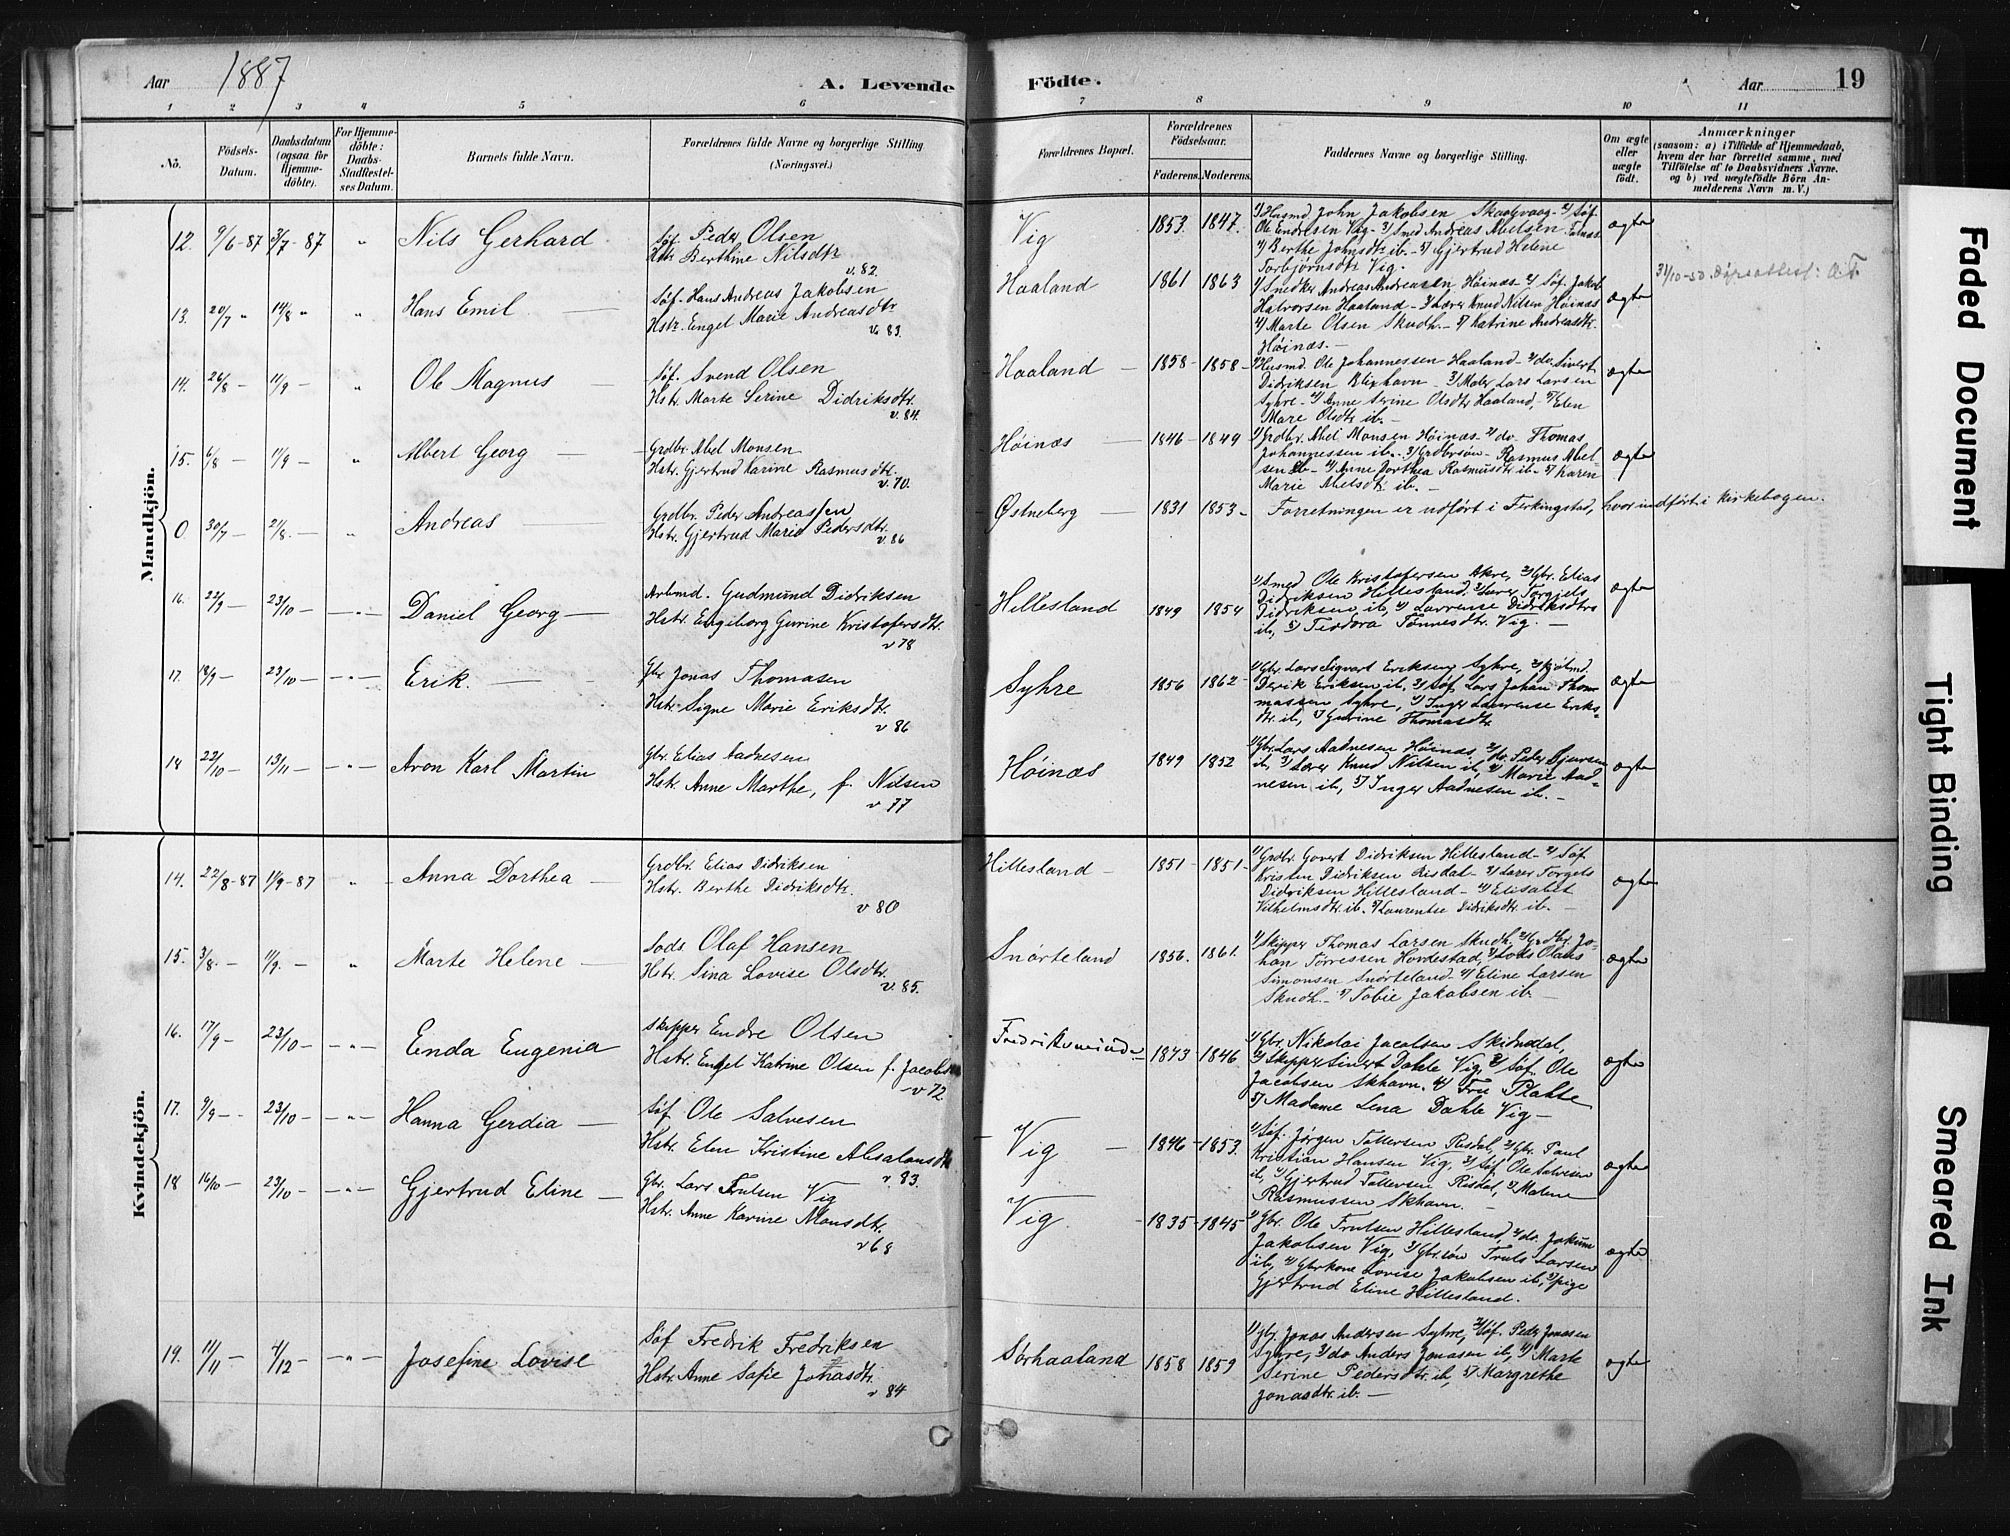 Aar 1887 A. Levende Födte. Aar 19
1 2 3 4 5 6 7 8 9 10 11
No.
Födsels-Datum.
Daabsdatum (ogsaa for Hjemme-döbte).
For Hjemme-döbte: Daabs-Stadfæstel-ses Datum.
Barnets fulde Navn.
Forældrenes fulde Navne og borgerlige Stilling (Næringsvei.)
Forældrenes Bopæl.
Forældrenes Födselsaar.
Faderens. Moderens.
Faddernes Navne og borgerlige Stilling.
Om ægte eller uægte födt.
Anmærkninger
(saasom: a) i Tilfælde af Hjemmedaab,
hvem der har forrettet samme, med
Tilföielse af to Daabsvidners Navne.
og b) ved uægtefödte Börn An-
melderens Navn m. V.)
Mandkjön.
12. 9/6-87 3/7-87 " Nils Gerhard
Søf. Peder Olsen
Hstr. Berthine Nilsdtr
v. 82.
Vig 1853. 1847.
1) Husmd John Jakobsen Skaalvaag- 2) Søf.
Ole Endresen Vig- 3) Smed Andreas Abelsen
4) Berthe Johnsdtr ib.- 5) Gjertrud Helene
Torbjørnsdtr Vig.
ægte
13. 20/7 " 14/8 " Hans Emil
Søf. Hans Andreas Jakobsen
Hstr. Engel Marie Andreasdtr
v. 83.
Haaland 1861 1863
1) Snedker Andreas Andreasen Høinæs- 2) Søf. Jakob
Halvorsen Haaland- 3) Lærer Knud Nilsen Høinæs
4) Marte Olsen Skudh.- 5) Katrine Andreasdtr.
Høinæs.-
ægte
31/10-50
14. 26/8 - 11/9 - " Ole Magnus
Søf. Svend Olsen
Hstr. Marte Serine Didriksdtr.
v. 84.
Haaland 1858- 1858-
1) Husmd. Ole Johannessen Haaland- 2) do. Sivert
Didriksen Blixhavn- 3) Maler Lars Larsen
Syhre- 4) Anne Serine Olsdtr Haaland,- 5) Elen
Mare Olsdtr ib.-
ægte
15. 6/8 - 11/9 - " Albert Georg
Grdbr. Abel Monsen
Hstr. Gjertrud Karine Rasmusdtr.
v. 70.
Høinæs 1846- 1849
1) Grdbr. Abel Monsen Høinæs- 2) do. Thomas
Johannessen ib.- 3) Grdbrsøn- Rasmus Abel-
sen ib- 4) Anne Dorthea Rasmusdtr ib.- 5) Karen
Marie Abelsdtr ib.-
ægte
0 30/7 - 21/8 - " Andreas
Grdbr. Peder Andreassen
Hstr. Gjertrud Marie Pedersdtr.
v. 86
Østneberg 1831 1853-
Forretningen er udført i Ferkingstad, hvor indført i Kirkebogen.
16. 22/9 - 23/10 - - " - Daniel Georg
Arbmd. Gudmund Didriksen
Hstr. Engeborg Gurine Kristofersdtr.
v 78
Hillesland 1849 1854
1) Smed Ole Kristofersen Akre, 2) Gbr. Elias
Didriksen Hillesland, 3) Lærer Torgiels
Didriksen ib, 4) Lavrense Didriksdtrs
ib, 5) Teodora Tønnesdtr. Vig.-
ægte
17. 18/9 - 23/10 - - " - Erik.
Gbr. Jonas Thomasen
Hstr. Signe Marie Eriksdtr.
v 86
Syhre 1856 1862-
1) Gbr. Lars Sigvart Eriksen Syhre,
Derik Eriksen ib, 3) Søf. Lars Johan Thom
massen Syhre, 4) Inger Laurense Eriks-
dtr. ib, 5) Gurine Thomasdtr.
ægte
18 23/10 - 13/11 - - " - Aron Karl Martin
Gbr. Elias Aadnesen
Hstr. Anne Marthe, f. Nilsen
v 77
Høinæs 1849 1852
1) Gbr. Lars Aadnesen Høinæs, 2) do. Peder Sjursen
ib, 3) Lærer Knud Nilsen ib, 4) Marie Aad-
nesen ib, 5) Inger Aadnesen ib.-
ægte
Kvindekjön.
14. 22/8-87 11/9-87 " Anna Dorthea
Grdbr. Elias Didriksen
Hstr. Berthe Didriksdtr.
v 80
Hillesland - 1851- 1851-
1) Grdbr. Govert Didriksen Hillesland- 2) Søf
Kristen Didriksen Risdal- 3) Lærer Torgels
Didriksen Hillesland- 4) Elisabet
Vilhelmsdtr. ib. 5) Laurentse Didriksdtr ib.-
ægte
15. 3/8 - 11/9 - " Marte Helene
Lods. Olaf Hansen
Hstr. Sina Lovise Olsdtr.
v. 85.
Snørteland 1856. 1861.
1) Skipper Thomas Larsen Skudh, 2) Grdbr. Jo-
han Tørressen Hordestad, 3) Lods Olaus
Simonsen Snørteland- 4) Eline Larsen
Skudh.- 5) Tobie Jakobsen ib.-
ægte
16. 17/9 - 23/10 - - " - Enda Eugenia
Skipper Endre Olsen
Hstr. Engel Katrine Olsen f. Jacobsen
v 72
Fredriksminde 1843 1846
1) Gbr. Nikolai Jacobsen
2) Skipper Sivert Dahle Vig, 3) Søf. Ole
Jacobsen Skhavn. 4) Fru Plahte
5) Madame Lena Dahle Vig-
ægte
17. 9/9 - 23/10 - - " - Hanna Gerdia
Søf. Ole Salvesen
Hstr. Elen Kristine Absalonsdtr
v. 83.
Vig 1846- 1853.
1) Søf. Jørgen Tollersen Risdal, 2) Gbr. Paul
Kristian Hansen Vig, 3) Søf. Ole Salvesen
ib, 4) Gjertrud Tollersen Risdal, 5) Malene
Rasmussen Skhavn.-
ægte
18 16/10 - 23/10 - - " - Gjertrud Eline
Gbr. Lars Trulsen Vig
Hstr. Anne Karine Monsdtr.
v 68
Vig. 1835- 1845
1) Gbr. Ole Trulsen Hillesland, 2) do. Jokum
Jakobsen Vig, 3) Gbr.søn Truls Larsen
ib, 4) Gbrkone Lovise Jakobsen ib, 5) pige
Gjertrud Eline Hillesland.
ægte
19. 11/11 - 4/12 - " - Josefine Lovise
Søf Fredrik Fredriksen
Hstr. Anne Sofie Jonasdtr.
v 84
Sørhaaland 1858 1859
1) Gbr. Jonas Andersen Syhre, 2) Søf. Peder Jonasen
Syhre, 3) do Anders Jonasen ib, 4) Marte
Serine Pedersdtr. ib, 5) Margrethe
Jonasdtr. ib.-
ægte
Faded Document
Tight Binding
Smeared Ink